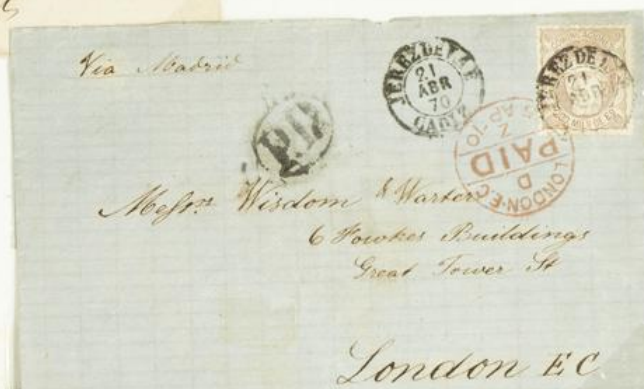 Via Madrid
JEREZ DE LA F
21
ABR
70
CADIZ
JEREZ DE LA
21
ABR
P.D.
LONDON·E.C
PAID
D
AP·70
Messrs Wisdom & Warter
6 Fowkes Buildings
Great Tower St
London EC